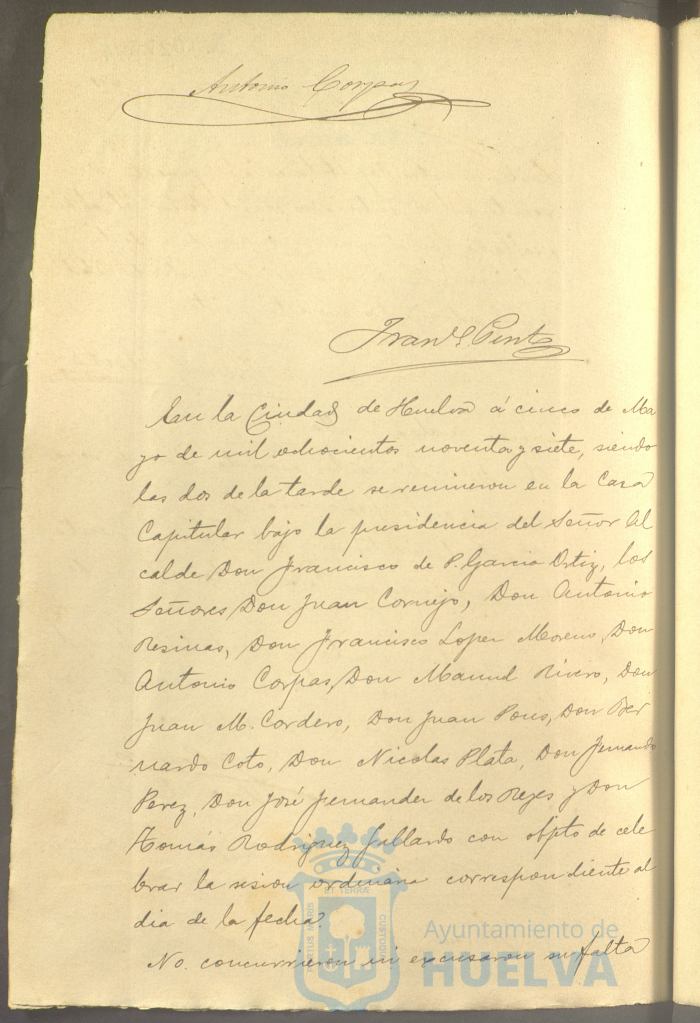 Antonio Corpas
En la Ciudad de Huelva á cinco de Ma
yo de mil ochocientos noventa y siete, siendo
las dos de la tarde se reunieron en la Casa
Capitular bajo la presidencia del Señor Al
calde Don Francisco de P. Garcia Ortiz, los
Señores Don Juan Cornejo, Don Antonio
Resinas, Don Francisco Lopez Moreno, Don
Antonio Corpas, Don Manuel Rivero, Don
Juan M. Cordero, Don Juan Pons, Don Ber
nardo Coto, Don Nicolas Plata, Don Fernando
Perez, Don José Fernandez de los Reyes y Don
Tomás Rodriguez Gallardo con objeto de cele
brar la sesion ordinaria correspondiente al
dia de la fecha
No concurrieron ni excusaron su falta
ET TERRA
PORTUS MARIS
CUSTODIA
Ayuntamiento de
HUELVA